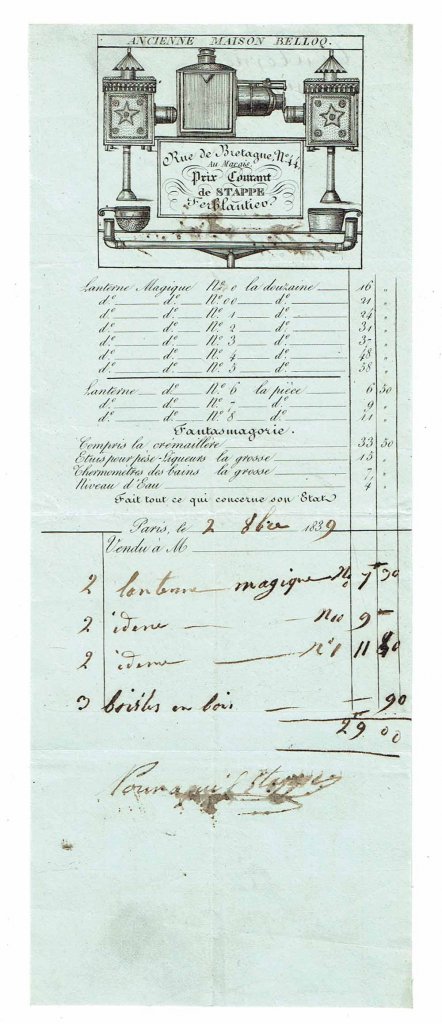 ANCIENNE MAISON BELLOQ.
Rue de Bretagne, No. 44,
Au Marais.
Prix Courant
de STAPPE
Ferblantier.
Lanterne Magique No. 0 la douzaine 16 "
do. do. No. 00 do. 21 "
do. do. No. 1 do. 24 "
do. do. No. 2 do. 31 "
do. do. No. 3 do. 37 "
do. do. No. 4 do. 48 "
do. do. No. 5 do. 58 "
Lanterne do. No. 6 la pièce 6 50
do. do. No. 7 do. 9 "
do. do. No. 8 do. 11 "
Fantasmagorie.
Compris la crémaillère 33 50
Etuis pour pèse-Liqueurs la grosse 15 "
Thermomètres des bains la grosse 7 "
Niveau d'Eau 4 "
Fait tout ce qui concerne son Etat
Paris, le 2 8bre 1839
Vendu à M
2 lanterne magique No 0 7 50
2 ideme No 00 9 –
2 ideme No 1 11 60
3 boistes en bois 90
29 00
Pour aquit Stappe